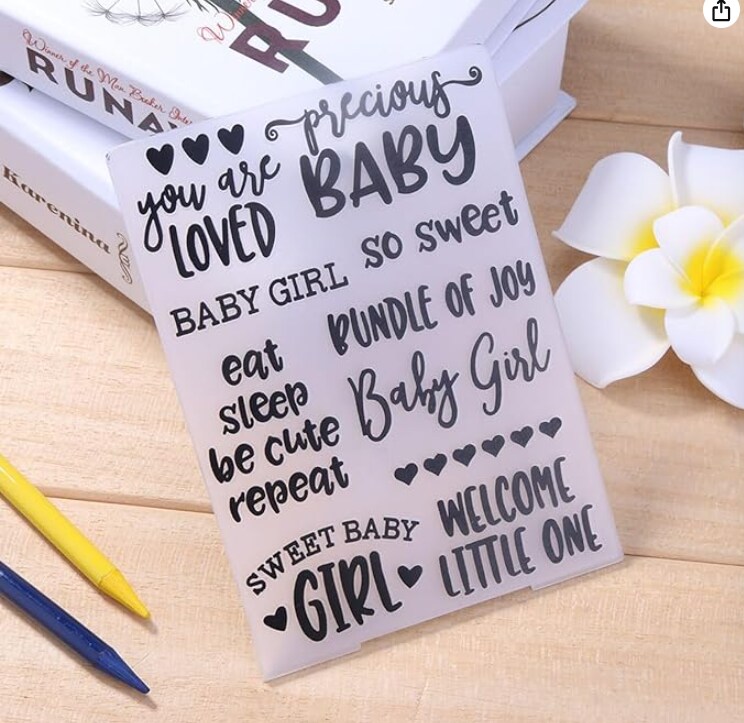 Winner of the Man Booker
RUNA
RU
Karenina
precious
BABY
you are
LOVED
so sweet
BABY GIRL
BUNDLE OF JOY
eat
sleep
be cute
repeat
Baby Girl
SWEET BABY
GIRL
WELCOME
LITTLE ONE